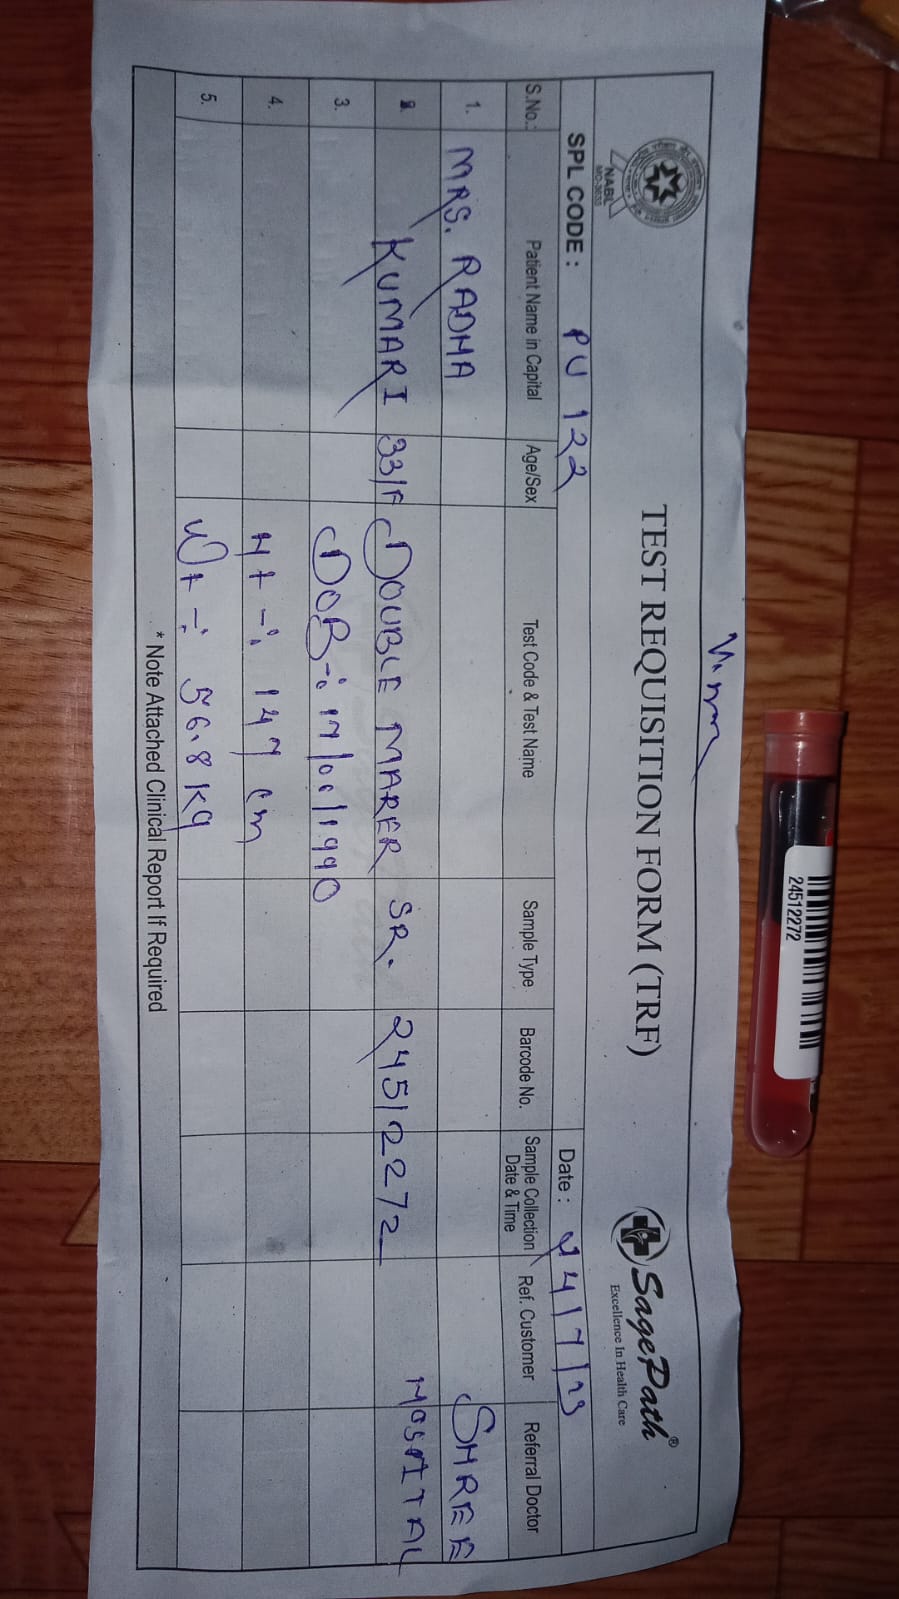 TEST REQUISITION FORM (TRF)
NABL
MC-3633
SagePath®
Excellence In Health Care
SPL CODE : PU 122
Date : 24/7/23
S.No.: Patient Name in Capital Age/Sex Test Code & Test Name Sample Type Barcode No. Sample Collection Date & Time Ref. Customer Referral Doctor
1. MRS. RADHA SHREE
2. KUMARI 33/F DOUBLE MARER SR. 24512272 HOSPITAL
3. DOB-: /1990
4. Ht-: 147 cm
5. Wt-: 56.8 Kg
* Note Attached Clinical Report If Required
24512272